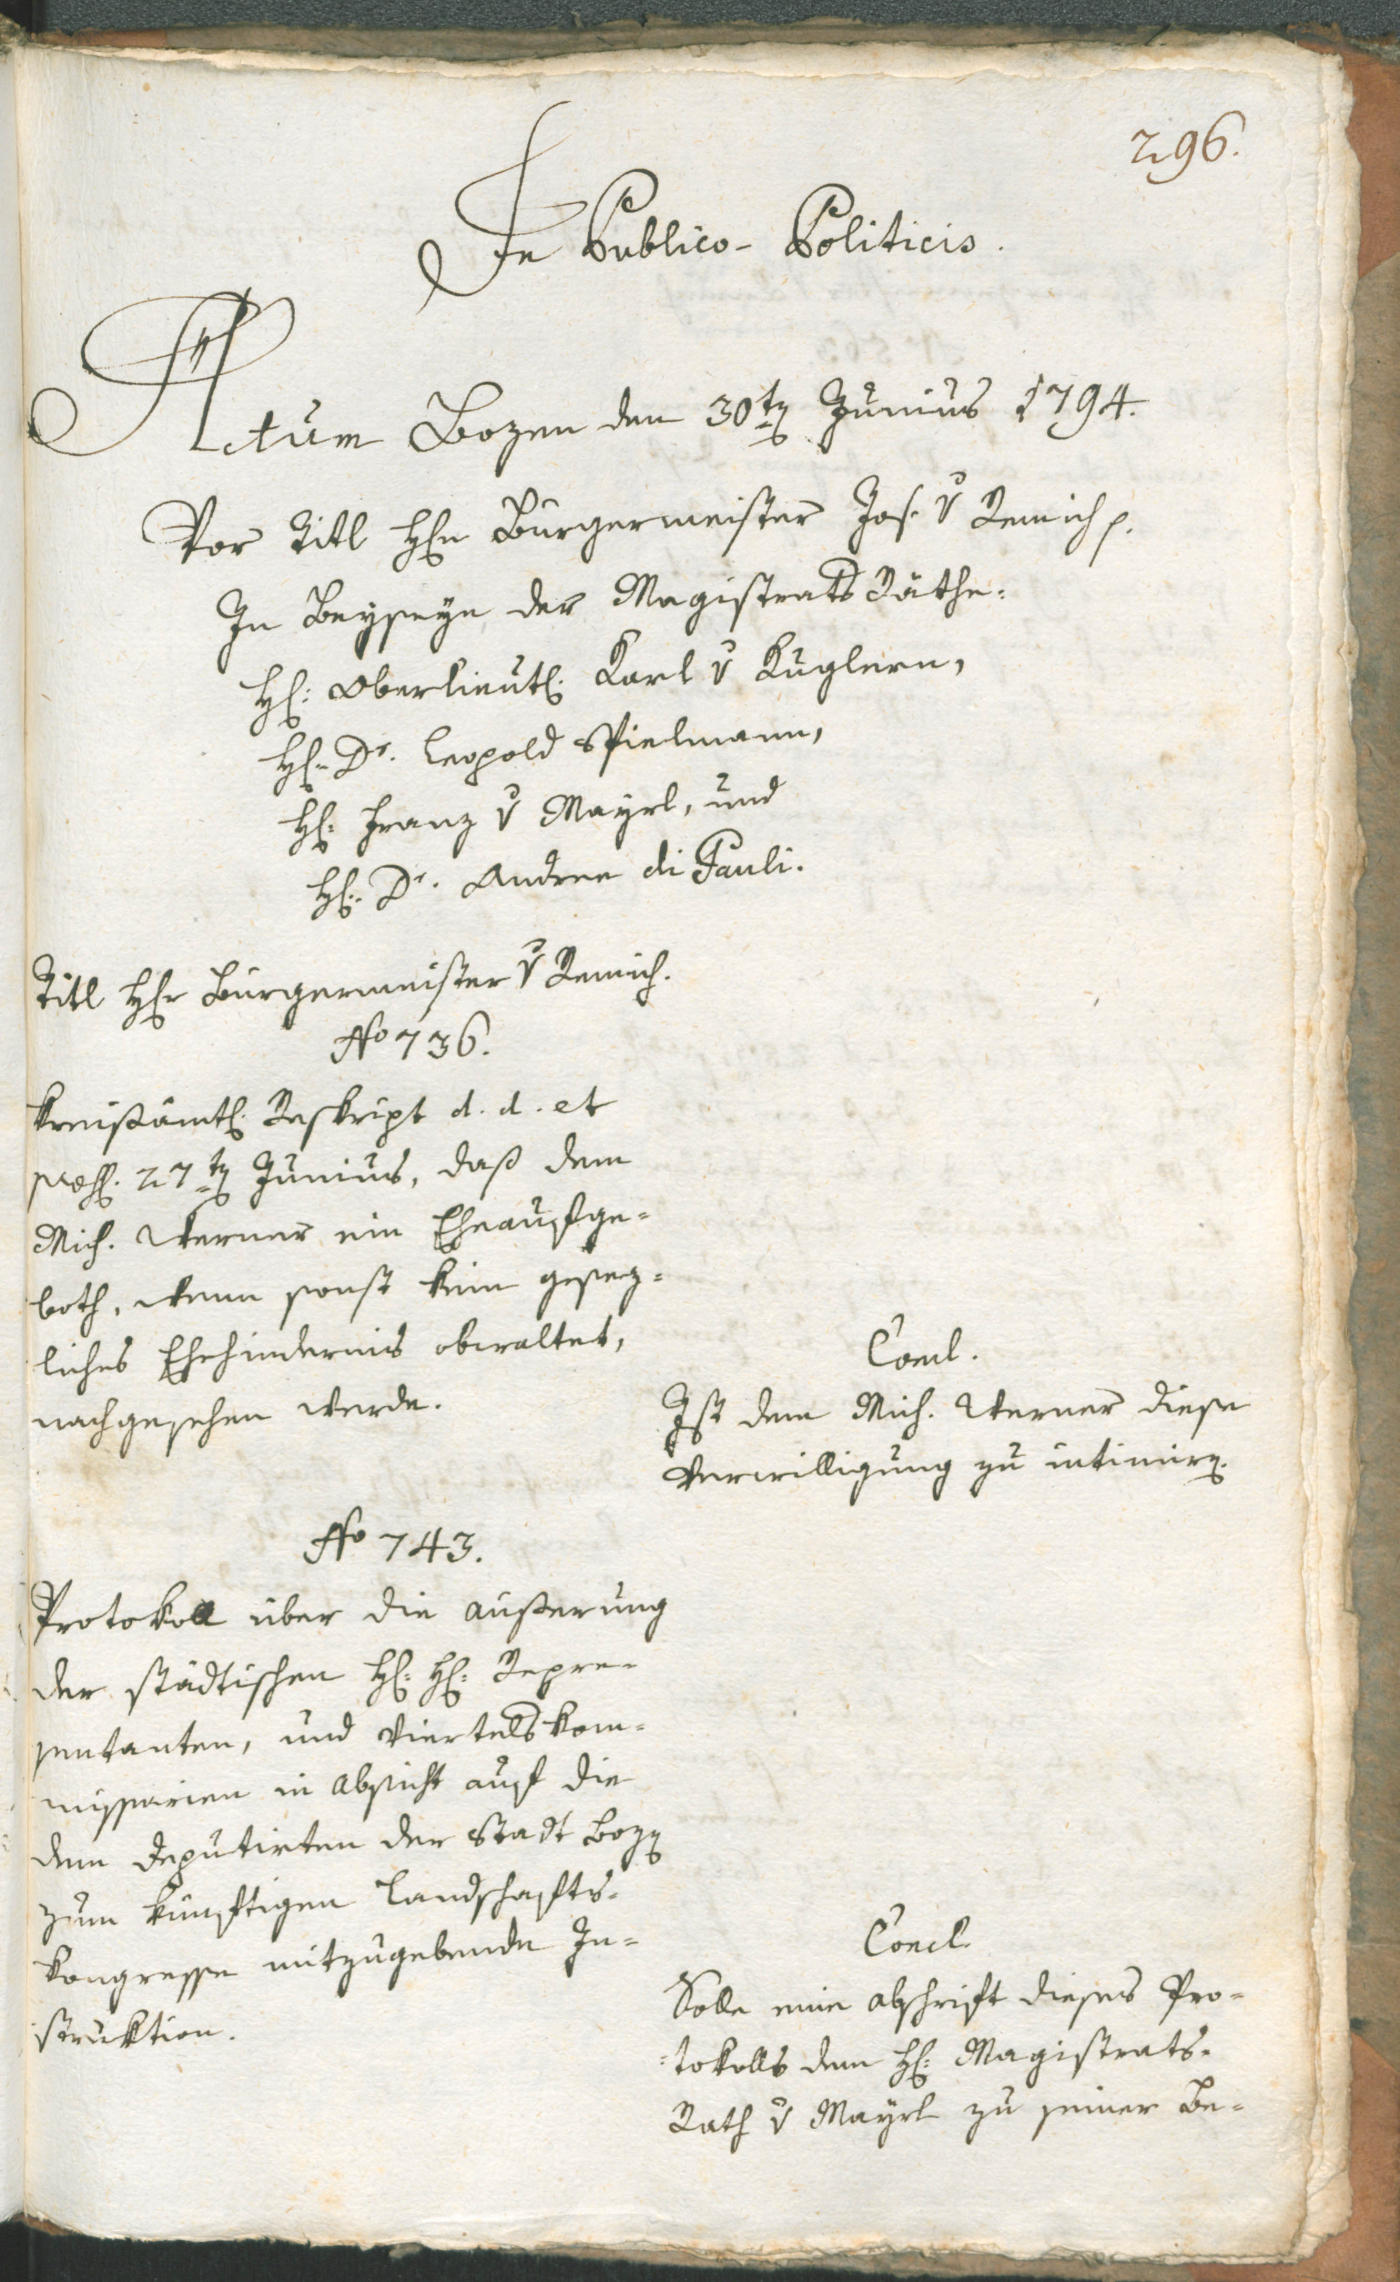 296.
In Publico-Politicis.
Actum Bozen den 30ten Junius 1794.
Vor Titl Hrn Bürgermeister Jos. v Remich p.
In Beyseyn der Magistrats Räthe:
Hr: Oberlieutl: Karl v Kuglern,
Hr: Dr. Leopold Spielmann,
Hr: Franz v Mayrl, und
Hr: Dr. Andree di Pauli.
Titl Hr Bürgermeister v Remich.
No 736.
Kreisämtl: Reskript d. d. et
præss. 27ten Junius, daß dem
Mich. Werner ein Eheaufge-
both, wenn sonst kein gesez-
liches Ehehindernis obwaltet,
nachgesehen werde.
Concl.
Ist dem Mich. Werner diese
Verwilligung zu intimiren.
No 743.
Protokoll über die Äußerung
der städtischen Hr: Hr: Repre-
sentanten, und Viertelskom-
missarien in Absicht auf die
dem Deputirten der Stadt Bozen
zum künftigen Landschafts-
kongresse mitzugebende In-
struktion.
Concl.
Solle eine Abschrift dieses Pro-
tokolls dem Hr: Magistrats-
Rath v Mayrl zu seiner Be-